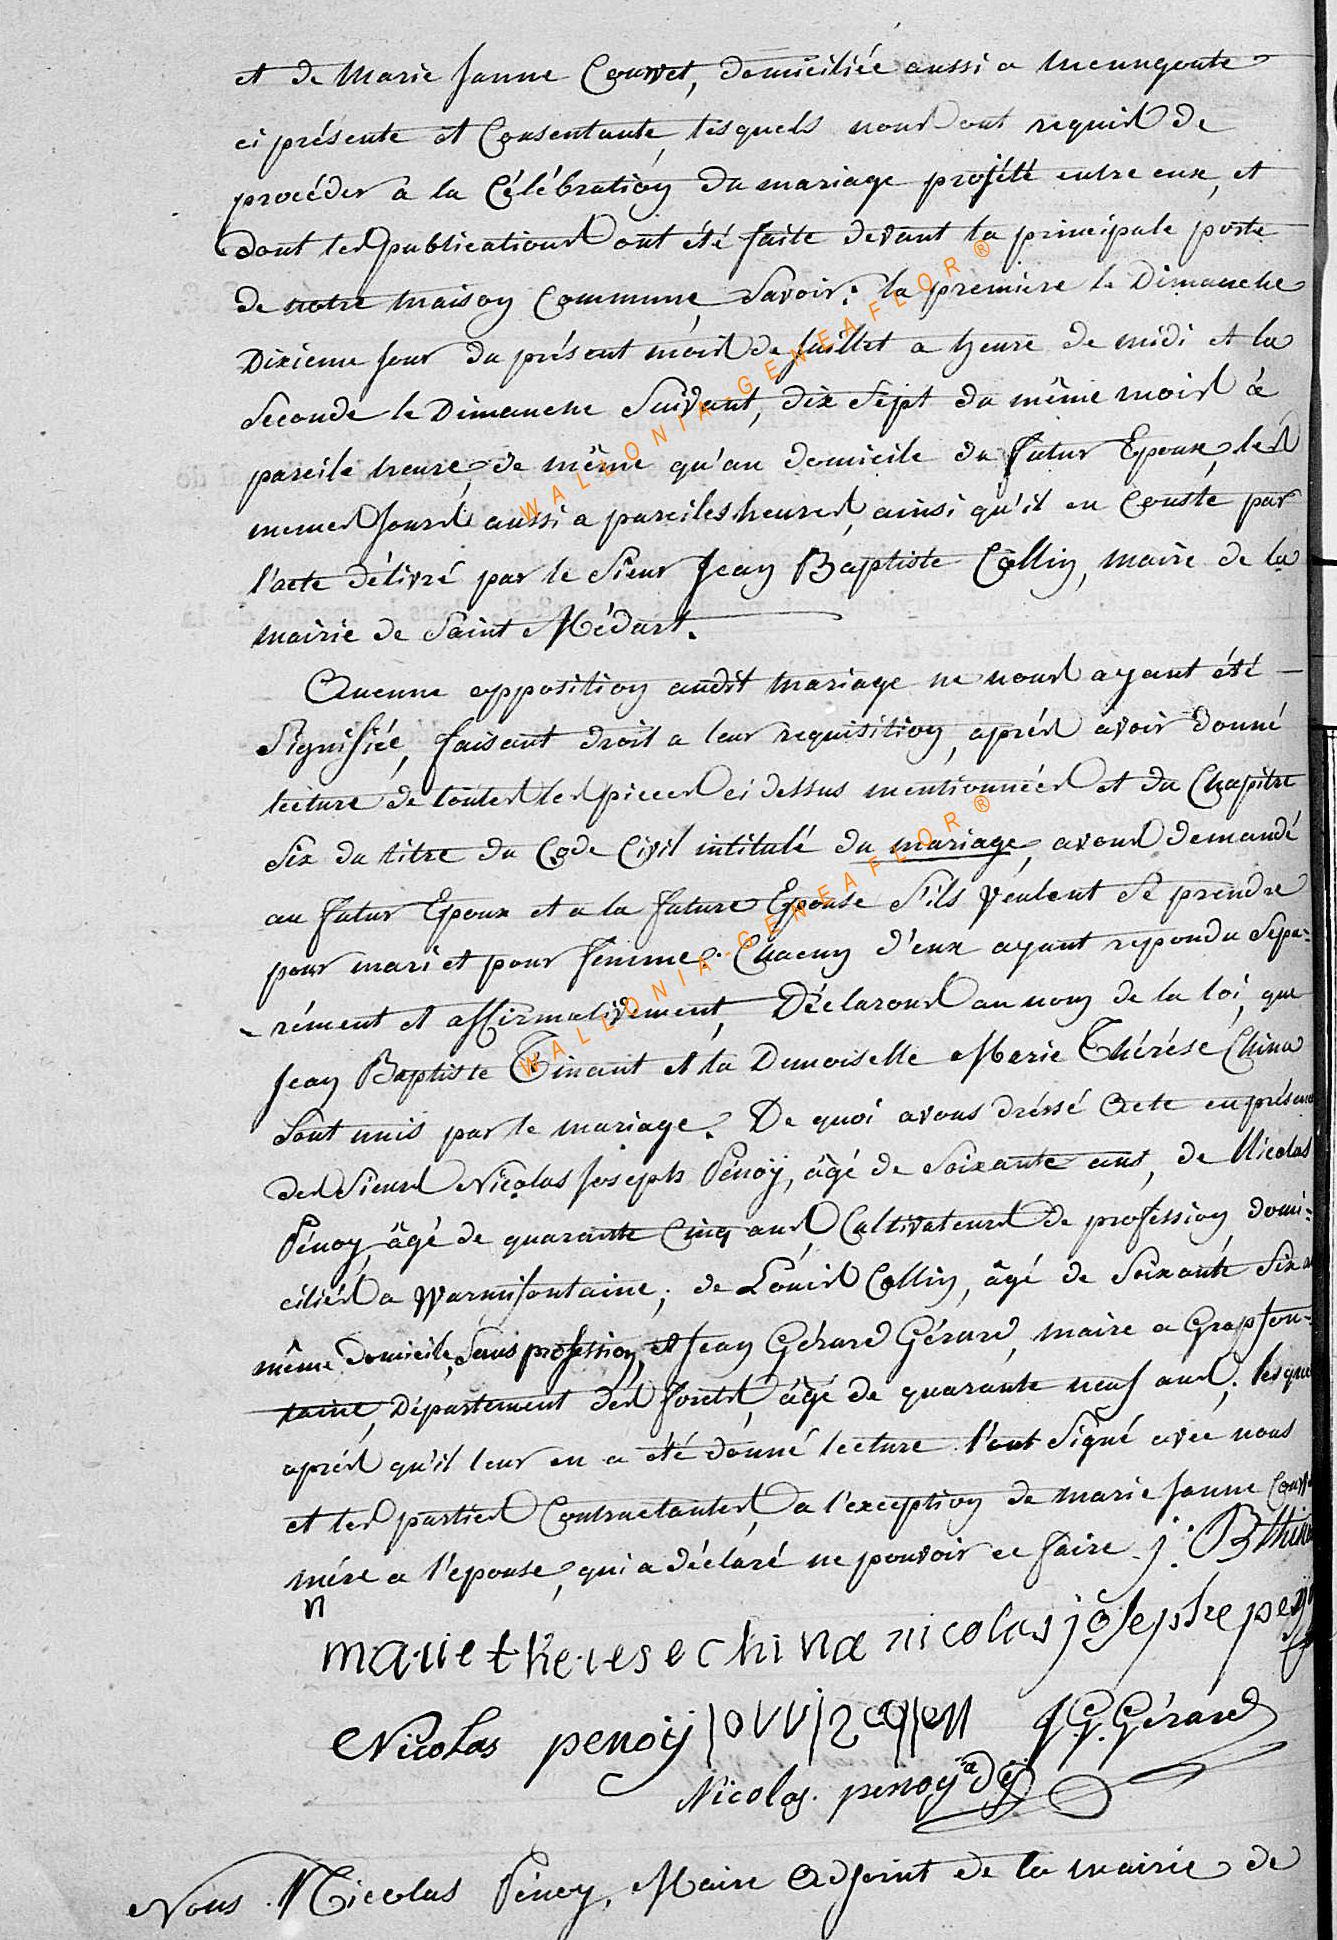 et de Marie Janne Couvet, domiciliée aussi a Menugoute
ci présente et Consentante, lesquels nous ont requis de
procéder à la Célébration du mariage projété entre eux, et
dont les publications ont été faite devant la principale porte
de notre maison Commune, Savoir: la première le Dimanche
Dixieme jour du présent mois de juillet a heure de midi et la
Seconde le Dimanche Suivant, dix Sept du même mois à
pareile heure, de même qu'au domicile du futur Epoux, les
memes jours aussi a pareiles heures, ainsi qu'il en Conste par
l'acte délivré par le Sieur Jean Baptiste Collin, maire de la
mairie de Saint Médart.
Aucune opposition audit mariage ne nous ayant été
Signifiée, faisant droit a leur requisition, aprés avoir donné
lecture de toutes les pieces ci dessus mentionnées et du Chapitre
Six du titre du Code Civil intitulé du mariage, avons demandé
au futur Epoux et a la future Epouse S'ils veulent Se prendre
pour mari et pour femme. Chacun d'eux ayant repondu Sepa-
rément et affirmativement, Déclarons au nom de la loi, que
Jean Baptiste Tinant et la Demoiselle Marie Thérése China
Sont unis par le mariage. De quoi avons dréssé Acte en présence
des Sieurs Nicolas Joseph Pénoÿ, âgé de Soixante ans, de Nicolas
Pénoy, âgé de quarante Cinq ans, Cultivateurs de profession, domi-
ciliés a Warmifontaine; de Louis Collin, âgé de Soixante Six a
même domicile, Sans profession, et Jean Gérard Gérard, maire a Grapfon-
taine, Département des forets, âgé de quarante neuf ans; lesque
aprés qu'il leur en a été donné lecture l'ont Signé avec nous
et les parties Contractantes, a l'exception de marie Janne Couve
mére a l'epouse, qui a déclaré ne pouvoir ce faire. j: B thin
n
marie therese china nicolas josephe peno
Nicolas penoij louis collen J. G. Gérard
Nicolas. penoy adj
Nous Nicolas Pénoy, Maire Adjoint de la mairie de
WALLONIA-GENEAFLOR®
WALLONIA-GENEAFLOR®